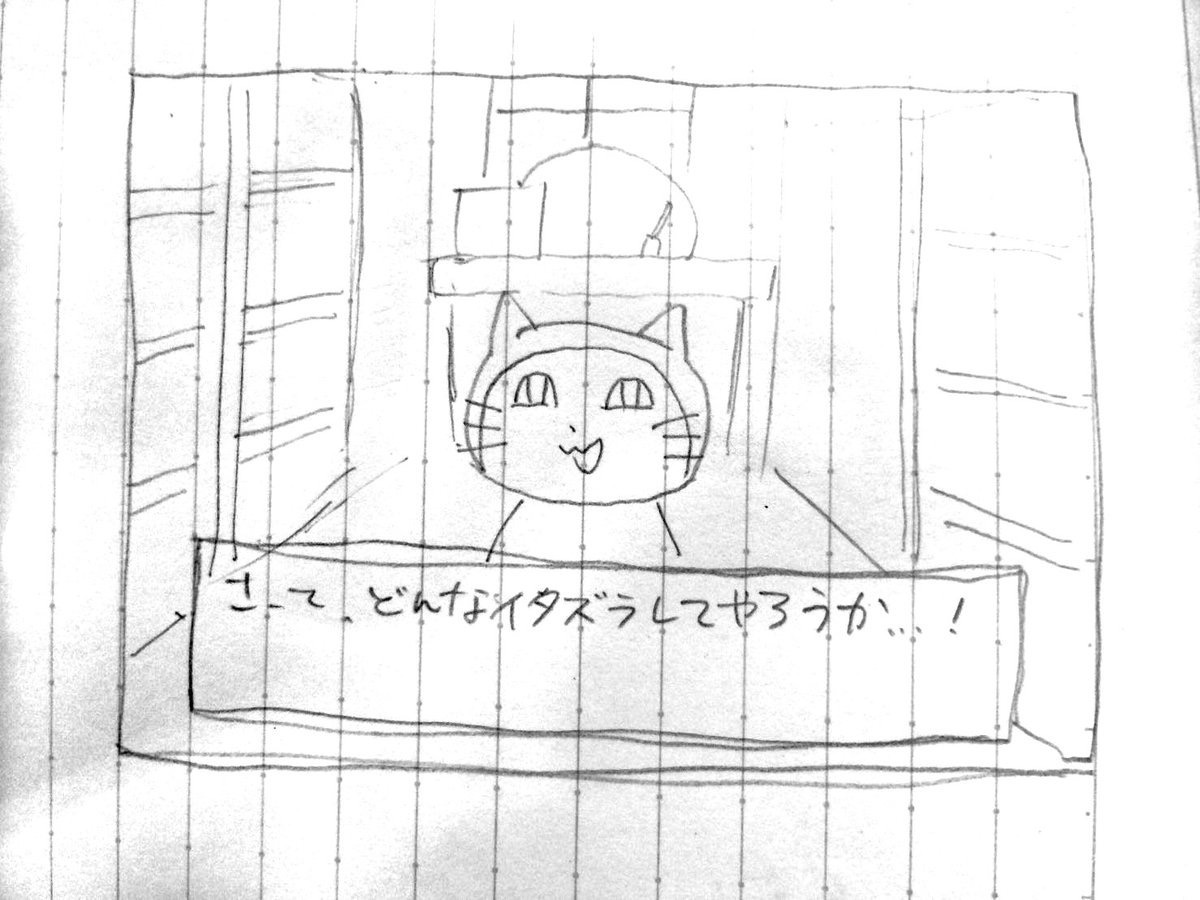 さーて、どんなイタズラしてやろうか…！